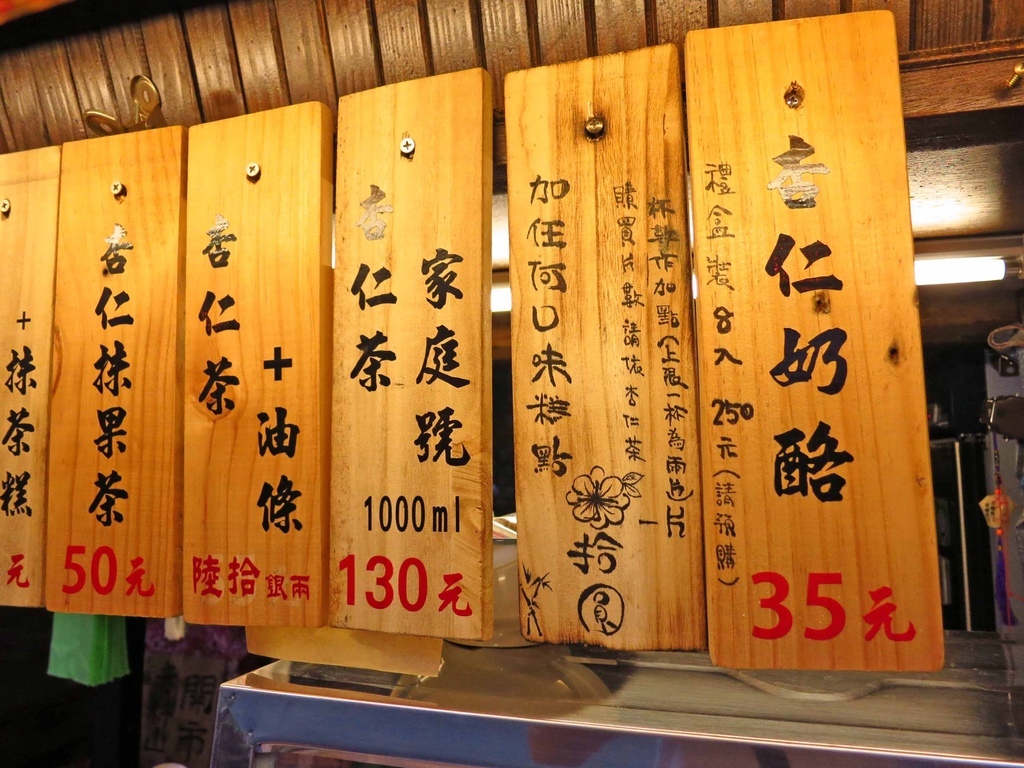 杏仁奶酪
禮盒裝8入 250元(請預購)
35元
杯數作加點(上限一杯為兩片)
購買片數請依杏仁茶
加任何口味糕點
一片
拾圓
家庭號
杏仁茶
1000ml
130元
杏仁茶
+油條
陸拾銀兩
杏仁抹果茶
50元
+抹茶糕
元
開市